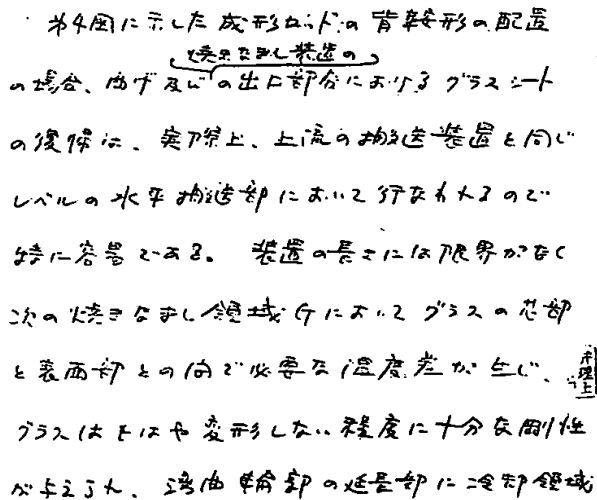 第4図に示した成形ベッドの背鞍形の配置
焼きなまし装置の
の場合、曲げ及びの出口部分におけるグラスシート
の復帰は、実際上、上流の搬送装置と同じ
レベルの水平搬送部において行なわれるので
特に容易である。装置の長さには限界がなく
次の焼きなまし領域Gにおいてグラスの芯部
と表面部との間で必要な温度差が生じ、
弁理士
グラスはもはや変形しない程度に十分な剛性
が与えられ、湾曲輪郭の延長部に冷却領域